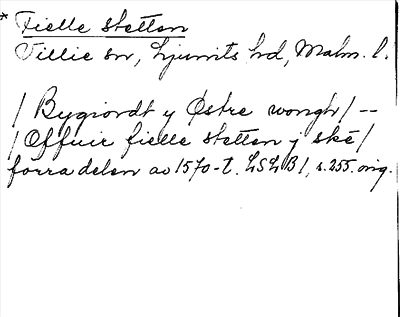 * Fielle stetten
Tillie sn, Ljunits hd, Malm. l.
/ Bygiordt y Østre wongh / --
/ Offuir fielle stetten y skè /
förra delen av 1570-t. LSLB 1, s. 255. orig.